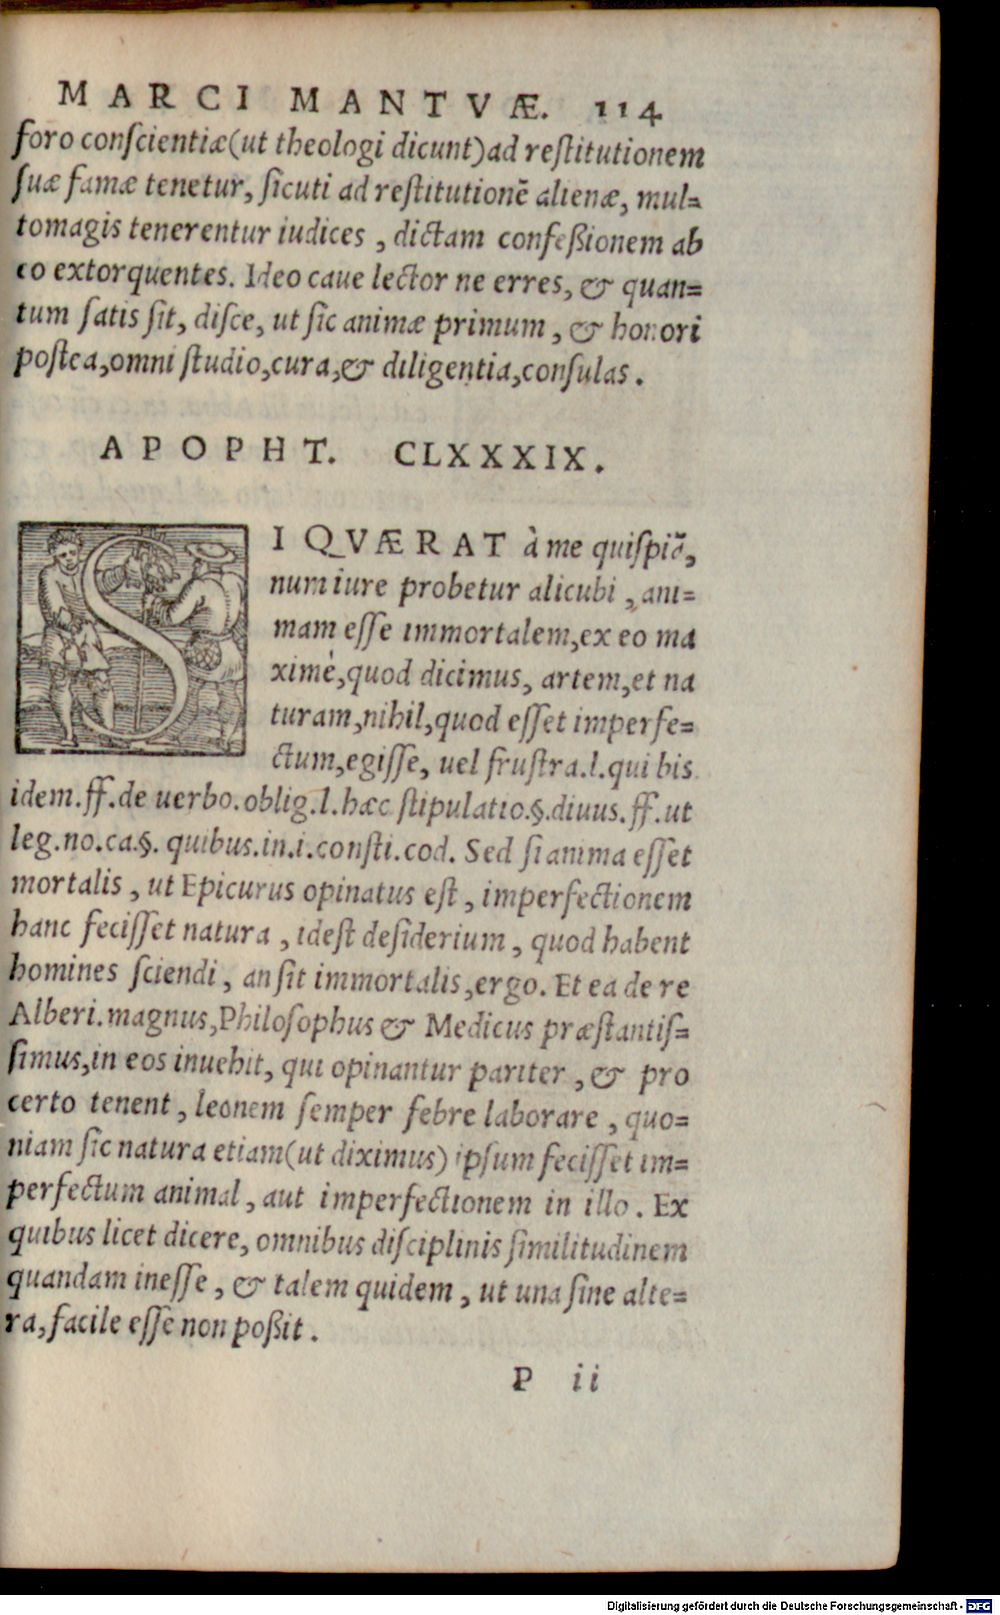 MARCI MANTVÆ. 114
foro conſcientiæ(ut theologi dicunt)ad reſtitutionem
ſuæ famæ tenetur, ſicuti ad reſtitutionē alienæ, mul-
tomagis tenerentur iudices, dictam confeßionem ab
eo extorquentes. Ideo caue lector ne erres, & quan-
tum ſatis ſit, diſce, ut ſic animæ primum, & honori
poſtea,omni ſtudio,cura,& diligentia,conſulas.
APOPHT. CLXXXIX.
SI QVÆRAT à me quiſpiā,
num iure probetur alicubi, ani-
mam eſſe immortalem,ex eo ma
ximè,quod dicimus, artem,et na
turam,nihil,quod eſſet imperfe-
ctum,egiſſe, uel fruſtra.l.qui bis
idem.ff.de uerbo.oblig.l.hæc ſtipulatio.§.diuus.ff.ut
leg.no.ca.§. quibus.in.i.conſti.cod. Sed ſi anima eſſet
mortalis, ut Epicurus opinatus eſt, imperfectionem
hanc feciſſet natura, ideſt deſiderium, quod habent
homines ſciendi, an ſit immortalis,ergo. Et ea de re
Alberi.magnus,Philoſophus & Medicus præſtantiſ-
ſimus,in eos inuehit, qui opinantur pariter, & pro
certo tenent, leonem ſemper febre laborare, quo-
niam ſic natura etiam(ut diximus) ipſum feciſſet im-
perfectum animal, aut imperfectionem in illo. Ex
quibus licet dicere, omnibus diſciplinis ſimilitudinem
quandam ineſſe, & talem quidem, ut una ſine alte-
ra,facile eſſe non poßit.
P ii
Digitalisierung gefördert durch die Deutsche Forschungsgemeinschaft - DFG